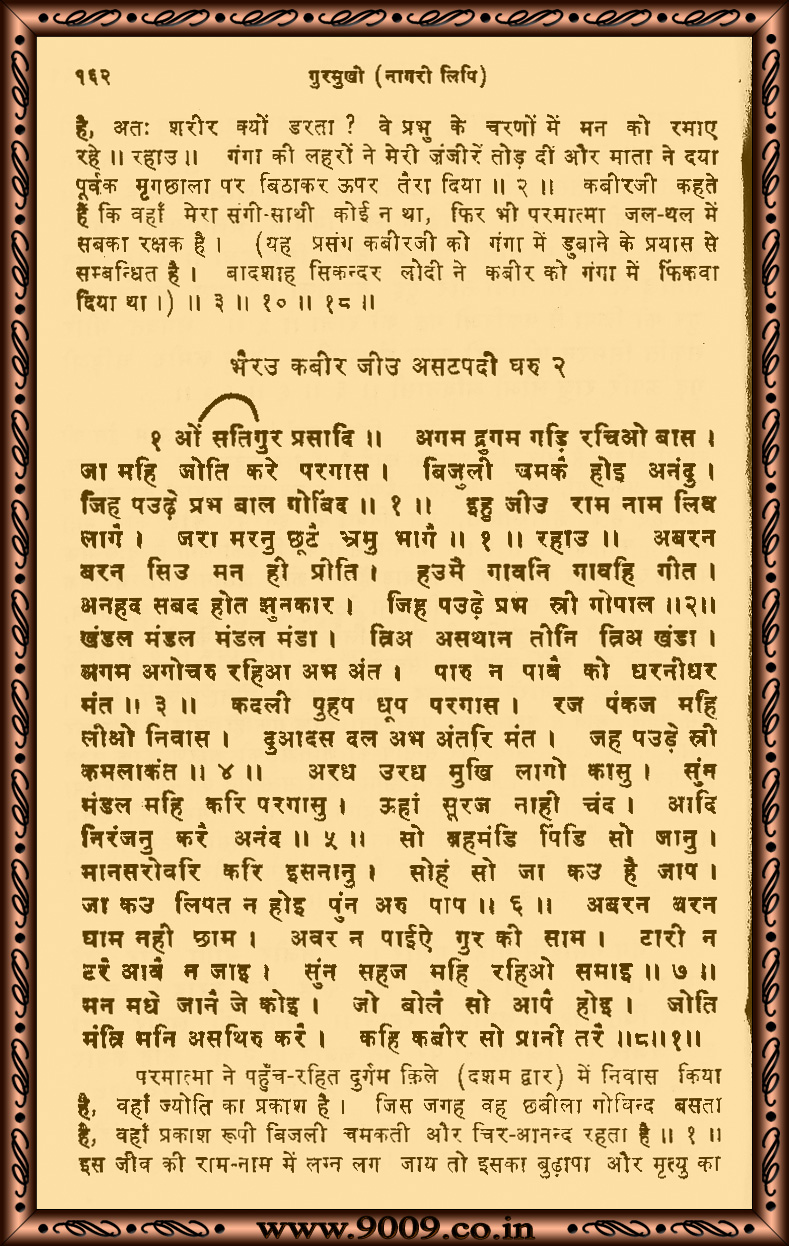 १६२ गुरमुखी (नागरी लिपि)
है, अतः शरीर क्यों डरता ? वे प्रभु के चरणों में मन को रमाए
रहे ॥ रहाउ ॥ गंगा की लहरों ने मेरी ज़ंजीरें तोड़ दीं और माता ने दया
पूर्वक मृगछाला पर बिठाकर ऊपर तैरा दिया ॥ २ ॥ कबीरजी कहते
हैं कि वहाँ मेरा संगी-साथी कोई न था, फिर भी परमात्मा जल-थल में
सबका रक्षक है । (यह प्रसंग कबीरजी को गंगा में डुबाने के प्रयास से
सम्बन्धित है । बादशाह सिकन्दर लोदी ने कबीर को गंगा में फिंकवा
दिया था ।) ॥ ३ ॥ १० ॥ १८ ॥
भैरउ कबीर जीउ असटपदी घरु २
१ ओं सतिगुर प्रसादि ॥ अगम द्रुगम गड़ि रचिओ बास ।
जा महि जोति करे परगास । बिजुली चमकै होइ अनंदु ।
जिह पउढ़े प्रभ बाल गोबिंद ॥ १ ॥ इहु जीउ राम नाम लिव
लागै । जरा मरनु छूटै भ्रमु भागै ॥ १ ॥ रहाउ ॥ अबरन
बरन सिउ मन ही प्रीति । हउमै गावनि गावहि गीत ।
अनहद सबद होत झुनकार । जिह पउढ़े प्रभ स्री गोपाल ॥२॥
खंडल मंडल मंडल मंडा । त्रिअ असथान तीनि त्रिअ खंडा ।
अगम अगोचरु रहिआ अभ अंत । पारु न पावै को धरनीधर
मंत ॥ ३ ॥ कदली पुहप धूप परगास । रज पंकज महि
लीओ निवास । दुआदस दल अभ अंतरि मंत । जह पउड़े स्री
कमलाकंत ॥ ४ ॥ अरध उरध मुखि लागो कासु । सुंन
मंडल महि करि परगासु । ऊहां सूरज नाही चंद । आदि
निरंजनु करै अनंद ॥ ५ ॥ सो ब्रहमंडि पिंडि सो जानु ।
मानसरोवरि करि इसनानु । सोहं सो जा कउ है जाप ।
जा कउ लिपत न होइ पुंन अरु पाप ॥ ६ ॥ अबरन बरन
घाम नही छाम । अवर न पाईऐ गुर की साम । टारी न
टरै आवै न जाइ । सुंन सहज महि रहिओ समाइ ॥ ७ ॥
मन मधे जानै जे कोइ । जो बोलै सो आपै होइ । जोति
मंत्रि मनि असथिरु करै । कहि कबीर सो प्रानी तरै ॥८॥१॥
परमात्मा ने पहुँच-रहित दुर्गम क़िले (दशम द्वार) में निवास किया
है, वहाँ ज्योति का प्रकाश है । जिस जगह वह छबीला गोविन्द बसता
है, वहाँ प्रकाश रूपी बिजली चमकती और चिर-आनन्द रहता है ॥ १ ॥
इस जीव की राम-नाम में लग्न लग जाय तो इसका बुढ़ापा और मृत्यु का
www.9009.co.in